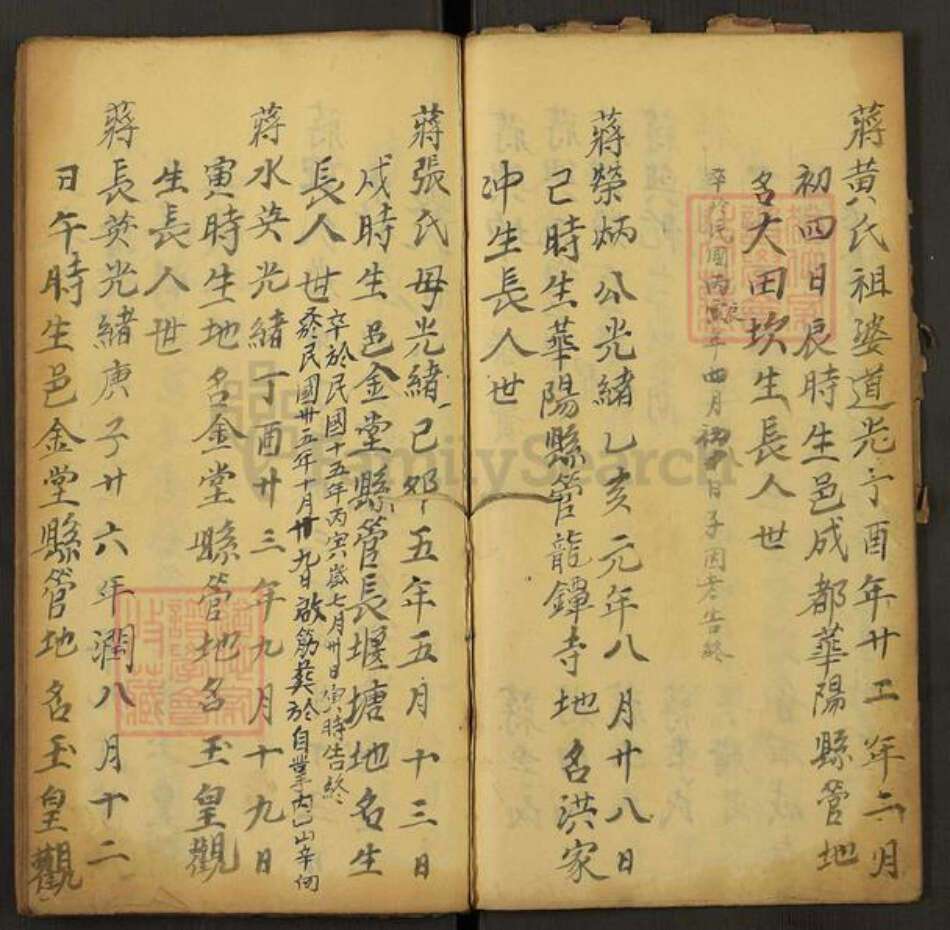 蔣黃氏祖婆道光丁酉年廿工年二月
初四日辰時生邑成都華陽縣管地
名大田坎生長人世
卒於民國丙寅年四月初八日子因老告終
蔣榮炳公光緒乙亥元年八月廿八日
己時生華陽縣管龍鐔寺地名洪家
冲生長人世
蔣張氏母光緒己卯五年五月十三日
戌時生邑金堂縣管長堰塘地名生
長人世
卒於民國十五年丙寅歲七月卅日寅時告終
民國卅五年十月廿九日啟筋葬於自業內山辛向
蔣水英光緒丁酉廿三年九月十九日
寅時生地名金堂縣管地名玉皇觀
生長人世
蔣長英光緒庚子廿六年潤八月十二
日午時生邑金堂縣管地名玉皇觀
FamilySearch